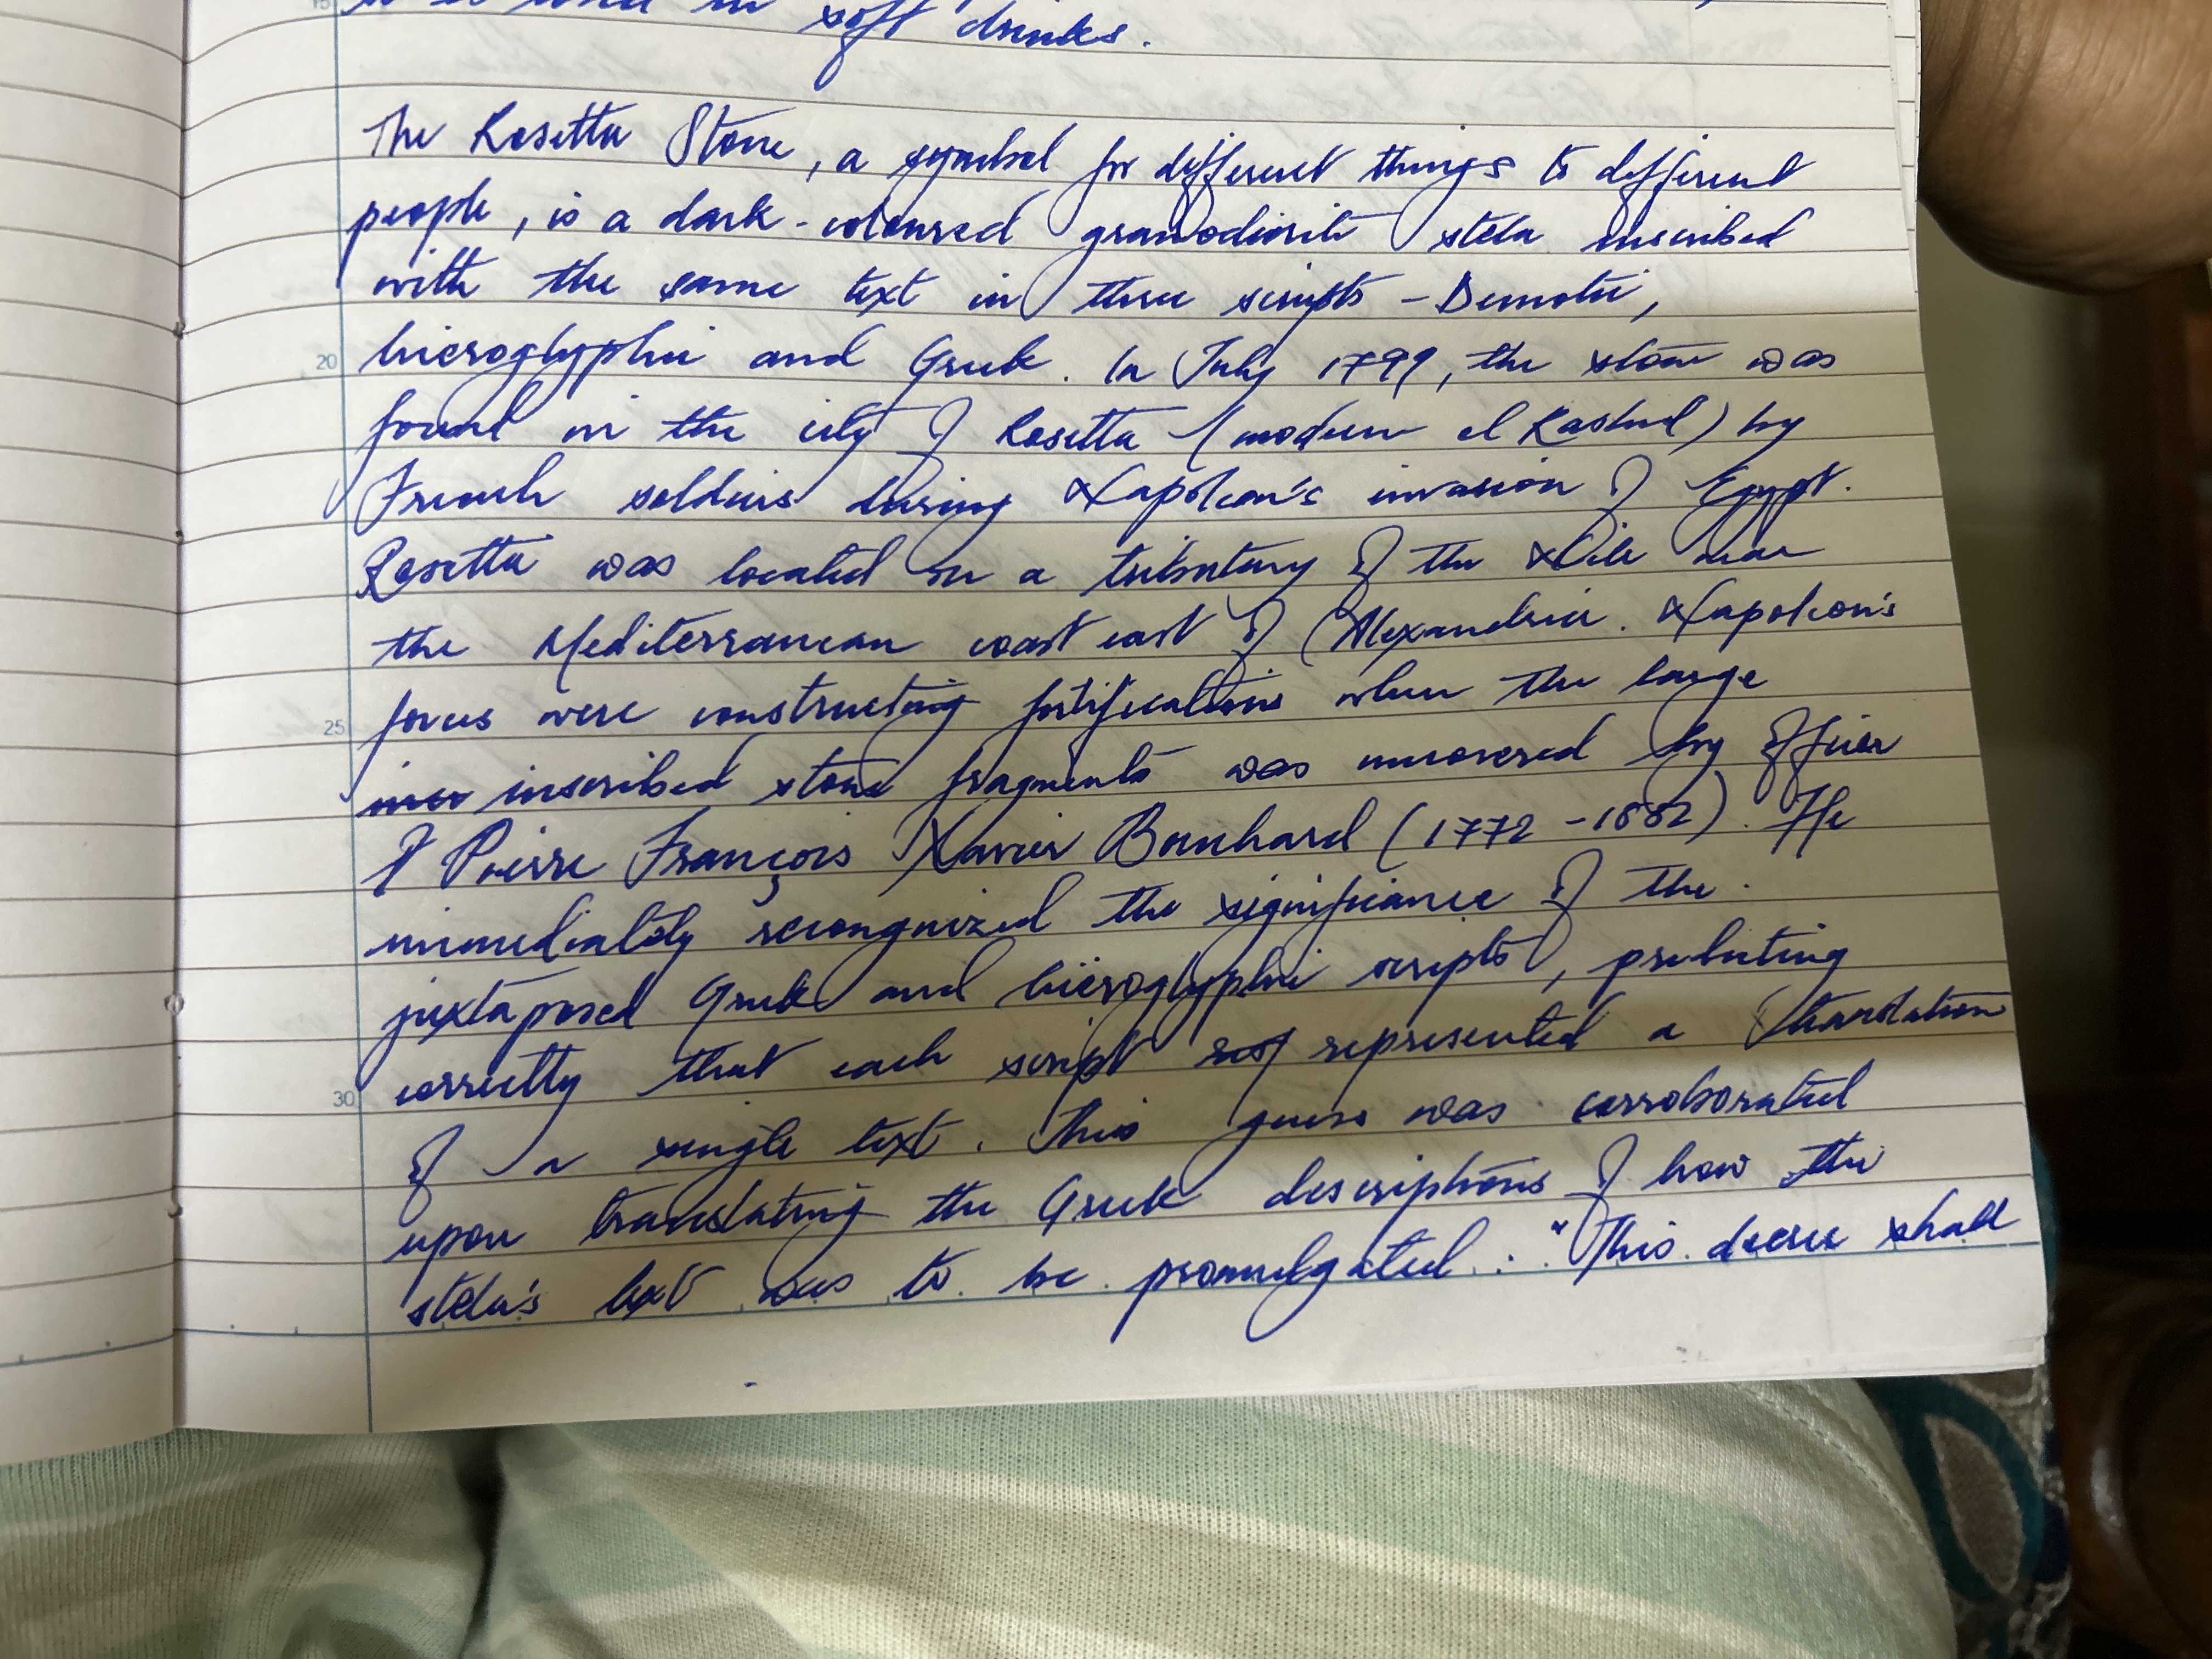 used in soft drinks.
The Rosetta Stone, a symbol for different things to different
people, is a dark-coloured granodiorite stela inscribed
with the same text in three scripts - Demotic,
hieroglyphic and Greek. In July 1799, the stone was
found in the city of Rosetta (modern el Rashid) by
French soldiers during Napoleon's invasion of Egypt.
Rosetta was located on a tributary of the Nile near
the Mediterranean coast east of Alexandria. Napoleon's
forces were constructing fortifications when the large
inscribed stone fragments was uncovered by officer
of Pierre François Xavier Bouchard (1772-1882). He
immediately recongnized the significance of the
juxtaposed Greek and hieroglyphic scripts,
correctly that each script represented a translation
of a single text. This guess was corroborated
upon translating the Greek descriptions of how the
stela's text was to be promulgated: "This decree shall
20
25
30